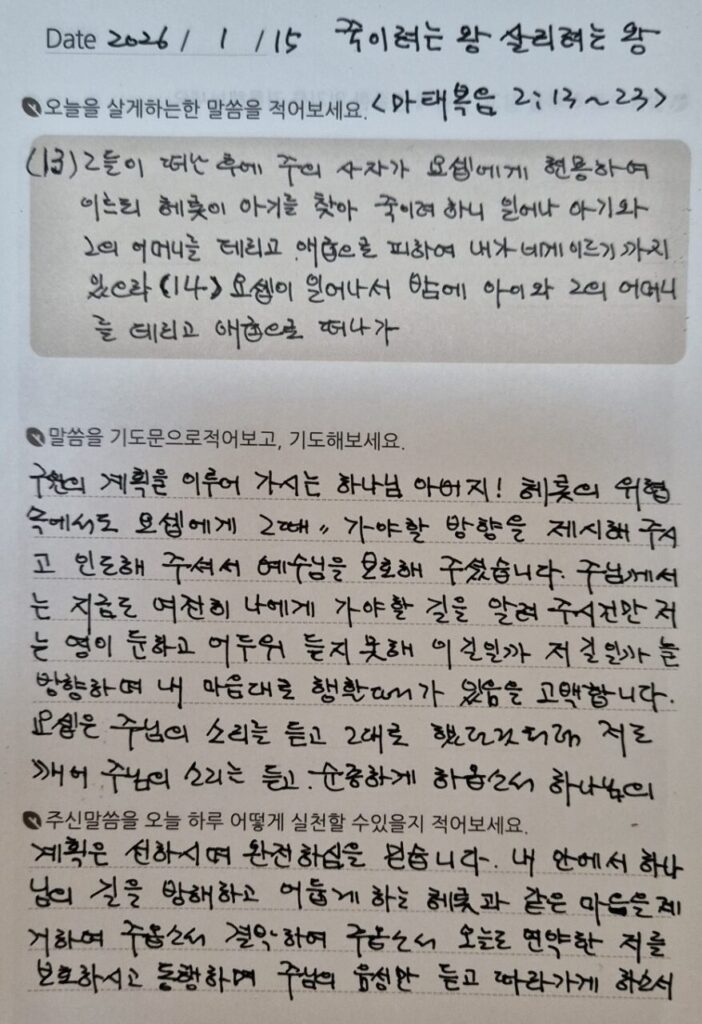 Date 2026 / 1 / 15 죽이려는 왕 살리려는 왕
오늘을 살게하는한 말씀을 적어보세요. <마태복음 2:13~23>
(13) 그들이 떠난 후에 주의 사자가 요셉에게 현몽하여
이르되 헤롯이 아기를 찾아 죽이려 하니 일어나 아기와
그의 어머니를 데리고 애굽으로 피하여 내가 네게 이르기까지
있으라 (14) 요셉이 일어나서 밤에 아이와 그의 어머니
를 데리고 애굽으로 떠나가
말씀을 기도문으로적어보고, 기도해보세요.
구원의 계획을 이루어 가시는 하나님 아버지! 헤롯의 위협
속에서도 요셉에게 그때〃 가야할 방향을 제시해 주시
고 인도해 주셔서 예수님을 보호해 주셨습니다. 주님께서
는 지금도 여전히 나에게 가야할 길을 알려 주시건만 저
는 영이 둔하고 어두워 듣지 못해 이길일까 저길일까 늘
방향하며 내 마음대로 행할때가 있음을 고백합니다.
요셉은 주님의 소리를 듣고 그대로 했던것처럼 저도
깨어 주님의 소리는 듣고 순종하게 하옵소서 하나님의
주신말씀을 오늘 하루 어떻게 실천할 수있을지 적어보세요.
계획은 선하시며 완전하심을 믿습니다. 내 안에서 하나
님의 길을 방해하고 어둡게 하는 헤롯과 같은 마음을 제
거하여 주옵소서 결박하여 주옵소서 오늘도 연약한 저를
보호하시고 동행하며 주님의 음성만 듣고 따라가게 하소서